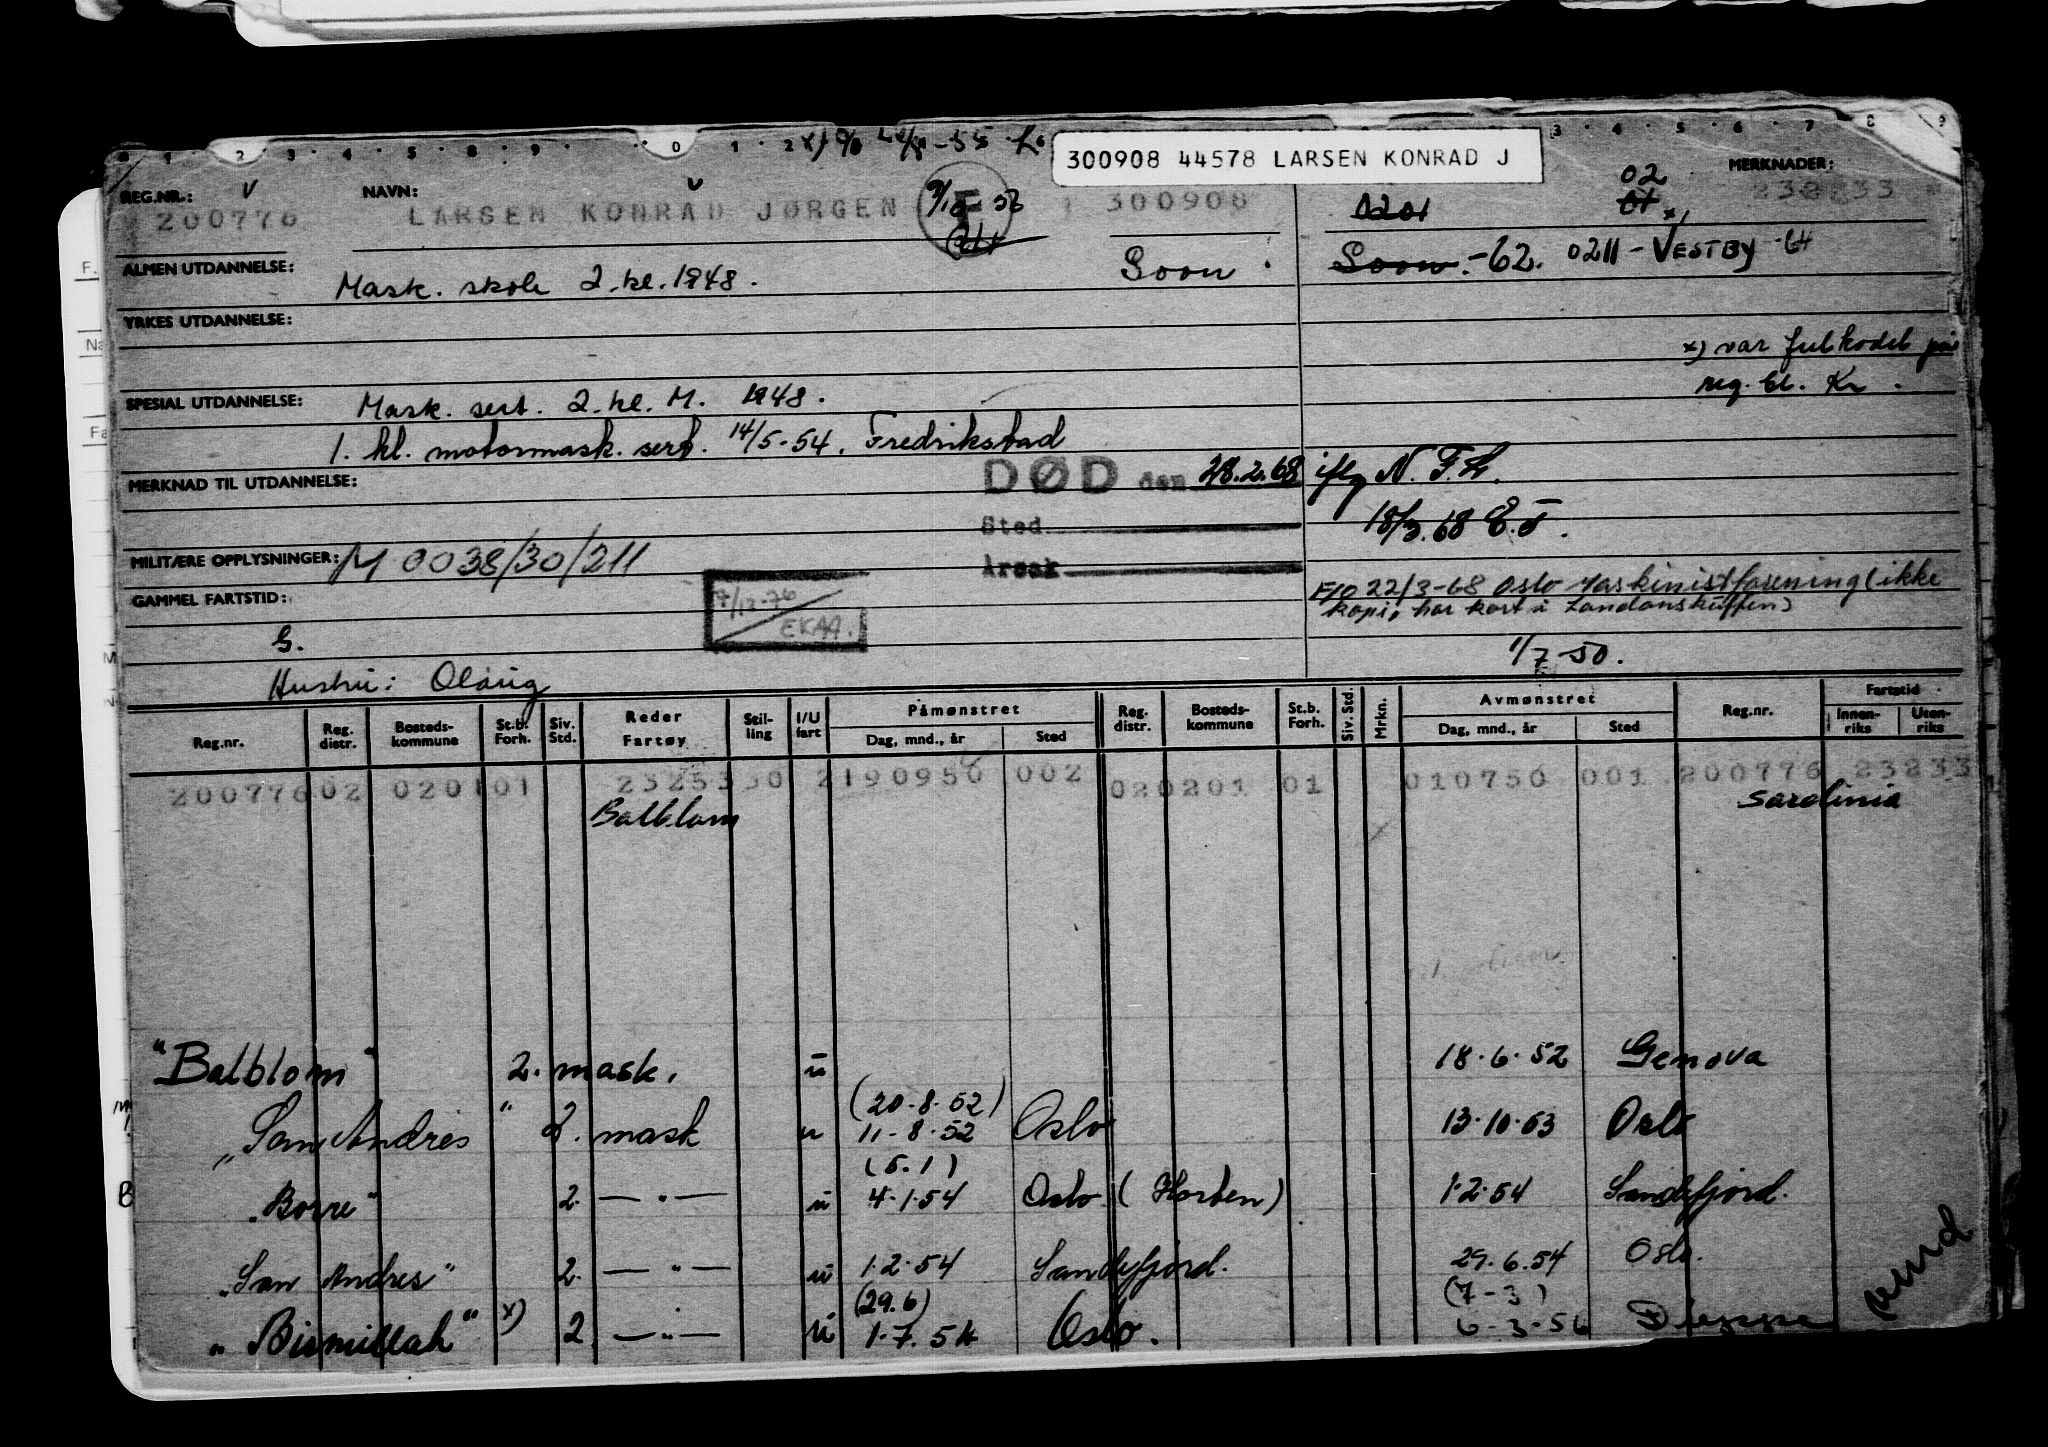 300908 44578 LARSEN KONRAD J
REG.NR.: V NAVN: V MERKNADER:
200776 LARSEN KONRAD JØRGEN 300908 0201 02 01 x) 23233
ALMEN UTDANNELSE: Mask. skole 2. kl. 1948. Soon Soon. -62. 0211 - VESTBY -64
YRKES UTDANNELSE:
x) var feilkodet på
reg. bl. Kr.
SPESIAL UTDANNELSE: Mask. sert. 2. kl. M. 1948.
1. kl. motormask. sert. 14/5-54. Fredrikstad
MERKNAD TIL UTDANNELSE: DØD den 28.2.68 iflg N.F.K.
Sted 18/3.68 E.T.
MILITÆRE OPPLYSNINGER: M 0038/30/211 Årsak
GAMMEL FARTSTID: 7/12-76 F/O 22/3-68 Oslo Maskinistforening (ikke
EKAA. kopi, har kort i Landonskuffen)
G. 1/7 50.
Hustru: Olaug
Reg.nr. Reg. distr. Bosteds-kommune St.b. Forh. Siv. Std. Reder Fartøy Stil-ling I/U fart Påmønstret Dag, mnd., år Sted Reg. distr. Bosteds-kommune St.b. Forh. Siv. Std. Mrkn. Avmønstret Dag, mnd., år Sted Reg.nr. Fartstid Innen-riks Uten-riks
200776 02 0201 01 2325330 2 190950 002 02 0201 01 010750 001 200776 23233
Balblom Sardinia
"Balblom" 2. mask. u 18.6.52 Genova
(20.8.52)
"San Andres" 2. mask u 11-8-52 Oslo 13.10.53 Oslo
(5.1)
"Borre" 2. — " — u 4.1.54 Oslo (Horten) 1.2.54 Sandefjord.
"San Andres" 2. — " — u 1.2.54 Sandefjord. 29.6.54 Oslo.
(29.6) (7-3)
"Bismillah" x) 2 — " — u 1.7.54 Oslo. 6-3-56 Dieppe
snu